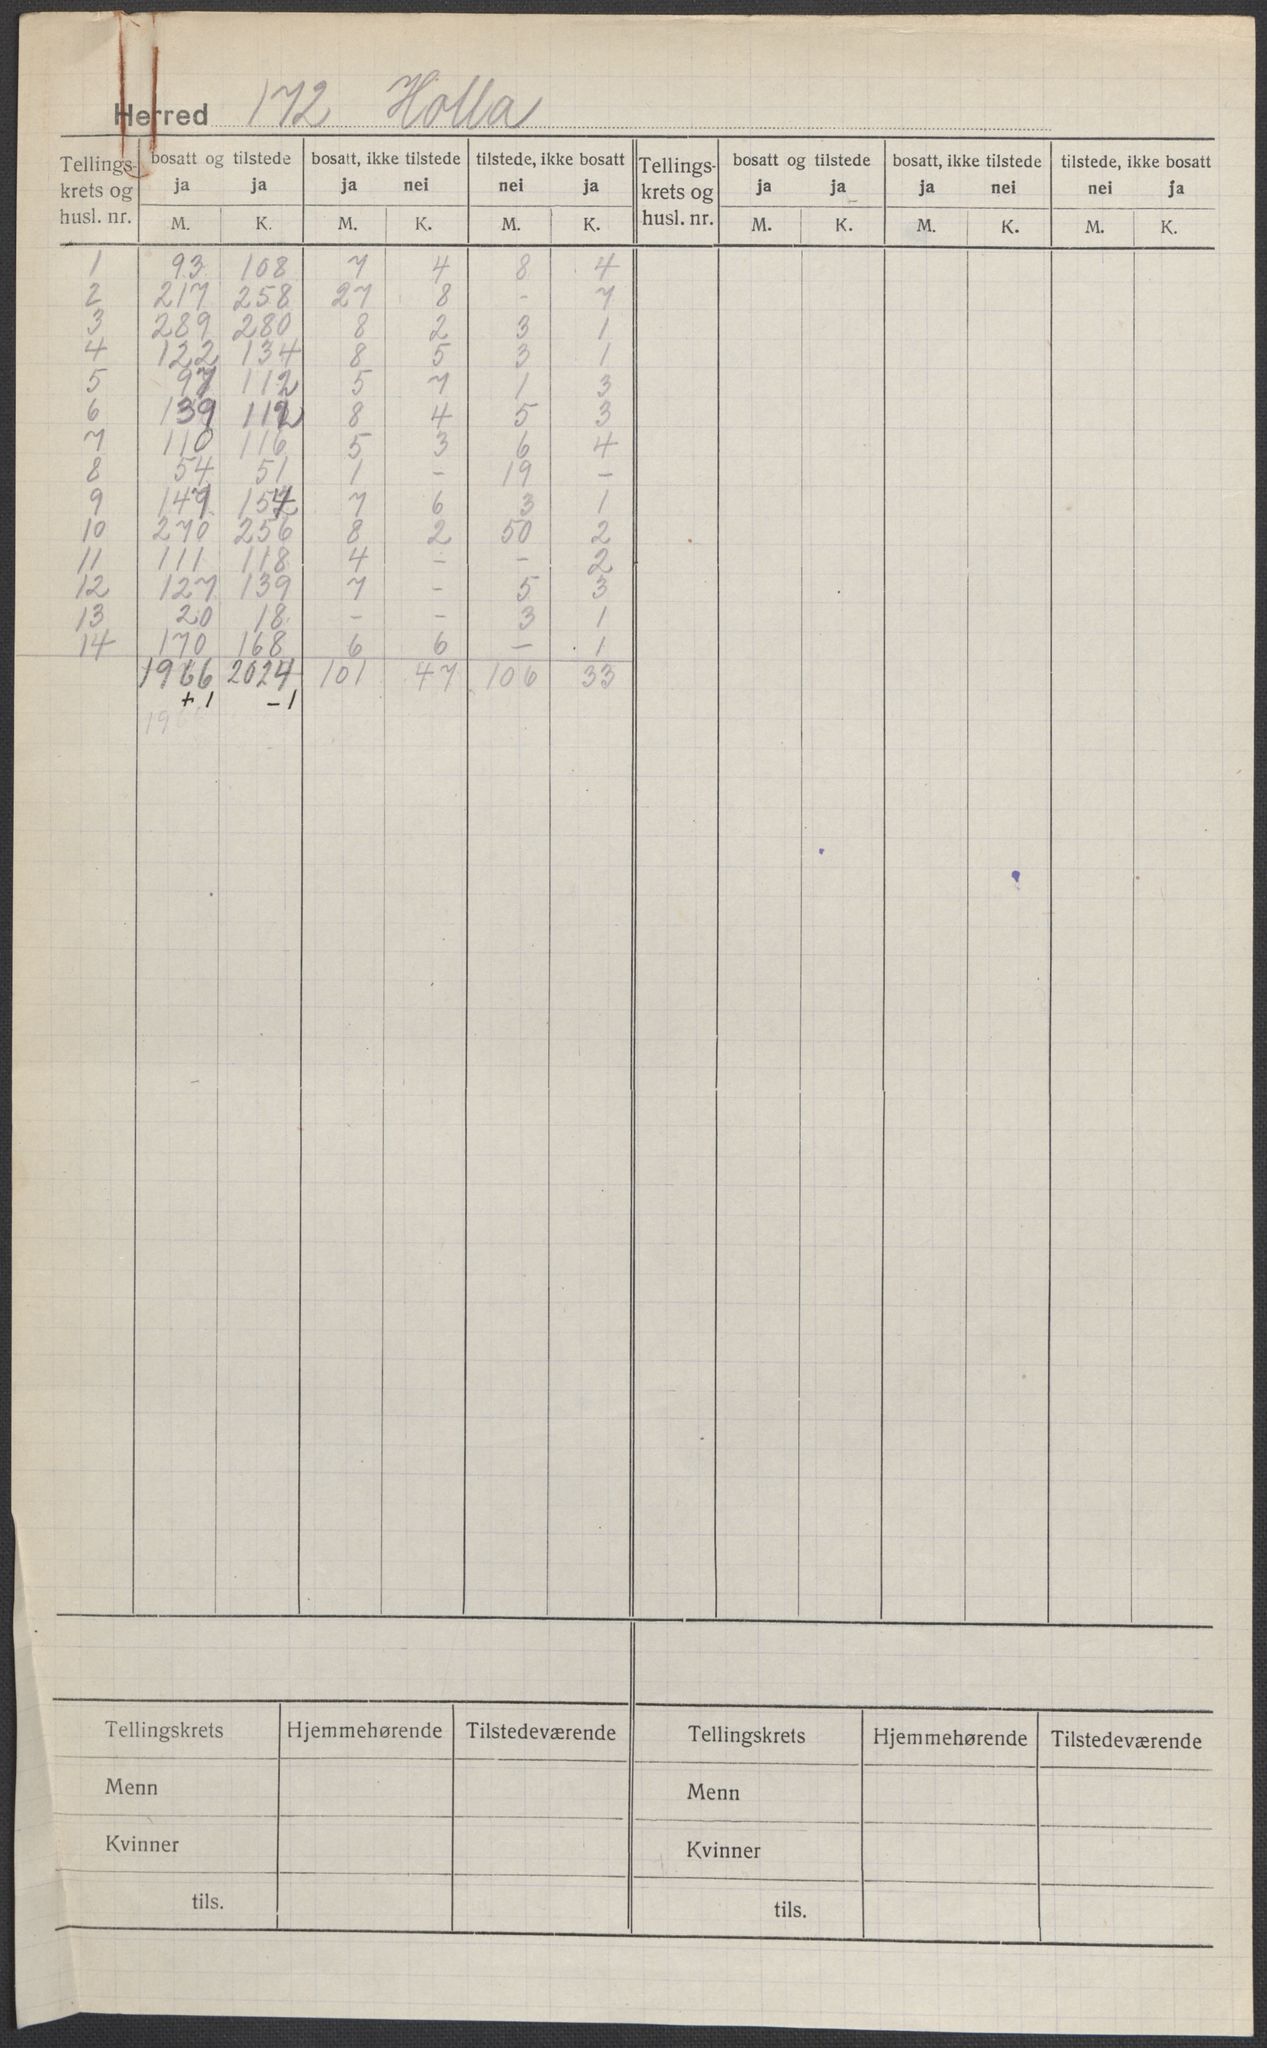 Herred 172 Holla
Tellings-krets og husl. nr. | bosatt og tilstede ja ja | bosatt, ikke tilstede ja nei | tilstede, ikke bosatt nei ja | Tellings-krets og husl. nr. | bosatt og tilstede ja ja | bosatt, ikke tilstede ja nei | tilstede, ikke bosatt nei ja
M. K. M. K. M. K. M. K. M. K. M. K.
1 93 108 7 4 8 4
2 217 258 27 8 - 7
3 289 280 8 2 3 1
4 122 134 8 5 3 1
5 97 112 5 7 1 3
6 139 112 8 4 5 3
7 110 116 5 3 6 4
8 54 51 1 - 19 -
9 147 154 7 6 3 1
10 270 256 8 2 50 2
11 111 118 4 - - 2
12 127 139 7 - 5 3
13 20 18 - - 3 1
14 170 168 6 6 - 1
1966 2024 101 47 106 33
+1 -1
Tellingskrets Hjemmehørende Tilstedeværende Tellingskrets Hjemmehørende Tilstedeværende
Menn Menn
Kvinner Kvinner
tils. tils.